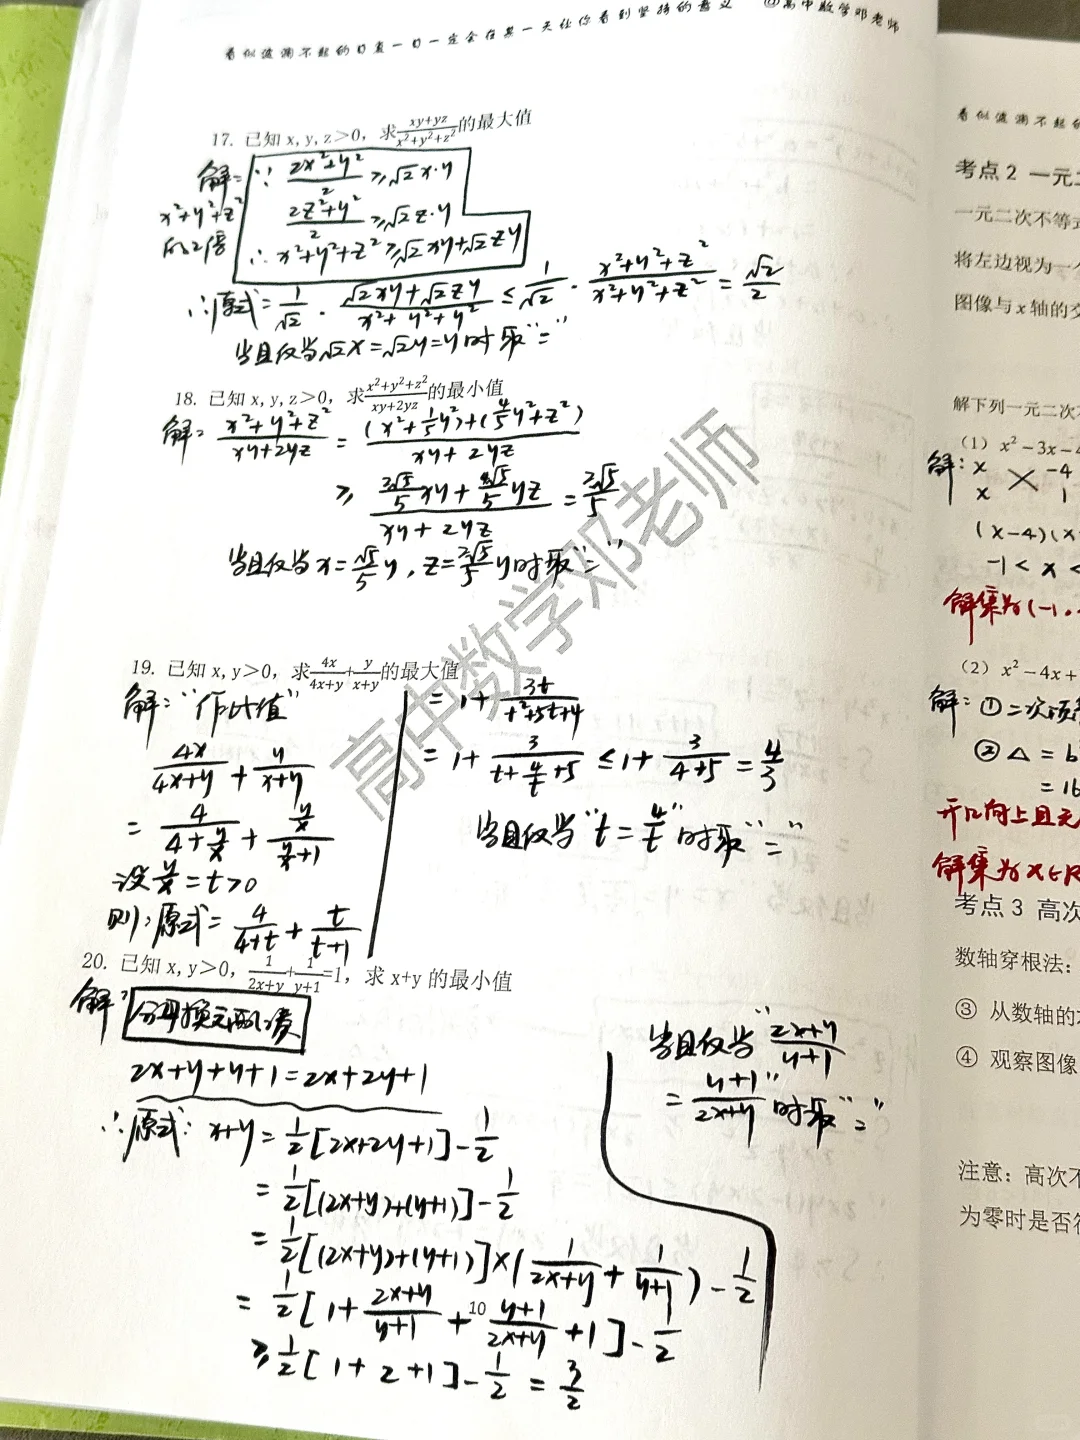 看似波澜不起的日复一日一定会在某一天让你看到坚持的意义 @高中数学邓老师
17. 已知 x,y,z>0，求(xy+yz)/(x²+y²+z²)的最大值
解: ∵ (2x²+y²)/2 ≥ √2x·y
x²+y²+z² 的2倍
(2z²+y²)/2 ≥ √2z·y
∴ x²+y²+z² ≥ √2xy+√2zy
∴原式 = 1/√2 · (√2xy+√2zy)/(x²+y²+y²) ≤ 1/√2 · (x²+y²+z²)/(x²+y²+z²) = √2/2
当且仅当√2x=√2y=y时取"="
18. 已知 x,y,z>0，求(x²+y²+z²)/(xy+2yz)的最小值
解: (x²+y²+z²)/(xy+2yz) = ((x²+1/5y²)+(4/5y²+z²))/(xy+2yz)
≥ (2√5/5xy+4√5/5yz)/(xy+2yz) = 2√5/5
当且仅当 x=√5/5y, z=2√5/5y时取"="
19. 已知 x,y>0，求4x/(4x+y)+y/(x+y)的最大值
解: "作比值"
4x/(4x+y) + y/(x+y)
= 4/(4+y/x) + (y/x)/(y/x+1)
设y/x=t>0
则: 原式= 4/(4+t) + t/(t+1)
= 1+ 3t/(t²+5t+4)
= 1+ 3/(t+4/t+5) ≤ 1+ 3/(4+5) = 4/3
当且仅当"t=4/t"时取"="
20. 已知 x,y>0，1/(2x+y)+1/(y+1)=1，求 x+y 的最小值
解: 分母换元配凑
2x+y+y+1=2x+2y+1
∴原式: x+y = 1/2[2x+2y+1]-1/2
= 1/2[(2x+y)+(y+1)]-1/2
= 1/2[(2x+y)+(y+1)]×(1/(2x+y) + 1/(y+1)) - 1/2
= 1/2[1+ (2x+y)/(y+1) + (y+1)/(2x+y) +1] - 1/2
≥ 1/2[1+2+1]-1/2 = 3/2
当且仅当"(2x+y)/(y+1)
= (y+1)/(2x+y)"时取"="
10
高中数学邓老师
看似波澜不起的
考点 2 一元二
一元二次不等式
将左边视为一个
图像与 x 轴的交
解下列一元二次不
（1）x²−3x−4
解: x -4
x 1
(x-4)(x
-1<x<
解集为(-1,
（2）x²−4x+
解: ①二次项系
②△=b
=16
开口向上且无
解集为x∈R
考点 3 高次
数轴穿根法：
③ 从数轴的
④ 观察图像
注意：高次不
为零时是否符